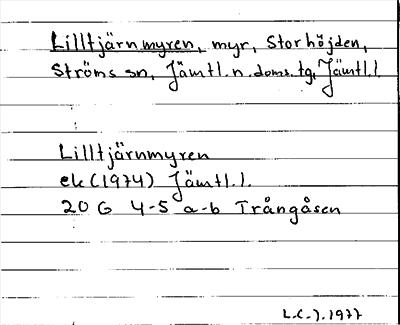 Lilltjärnmyren, myr, Storhöjden,
Ströms sn, Jämtl. n. doms. tg, Jämtl. l.
Lilltjärnmyren
ek (1974) Jämtl. l.
20 G 4-5 a-b Trångåsen
1977